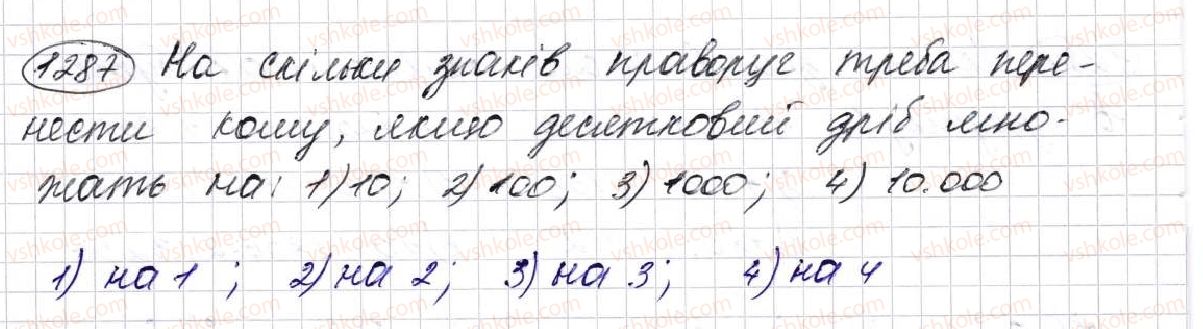 1287 На скільки знаків праворуч треба пере-
нести кому, якщо десятковий дріб мно-
жать на: 1) 10; 2) 100; 3) 1000; 4) 10.000
1) на 1; 2) на 2; 3) на 3; 4) на 4